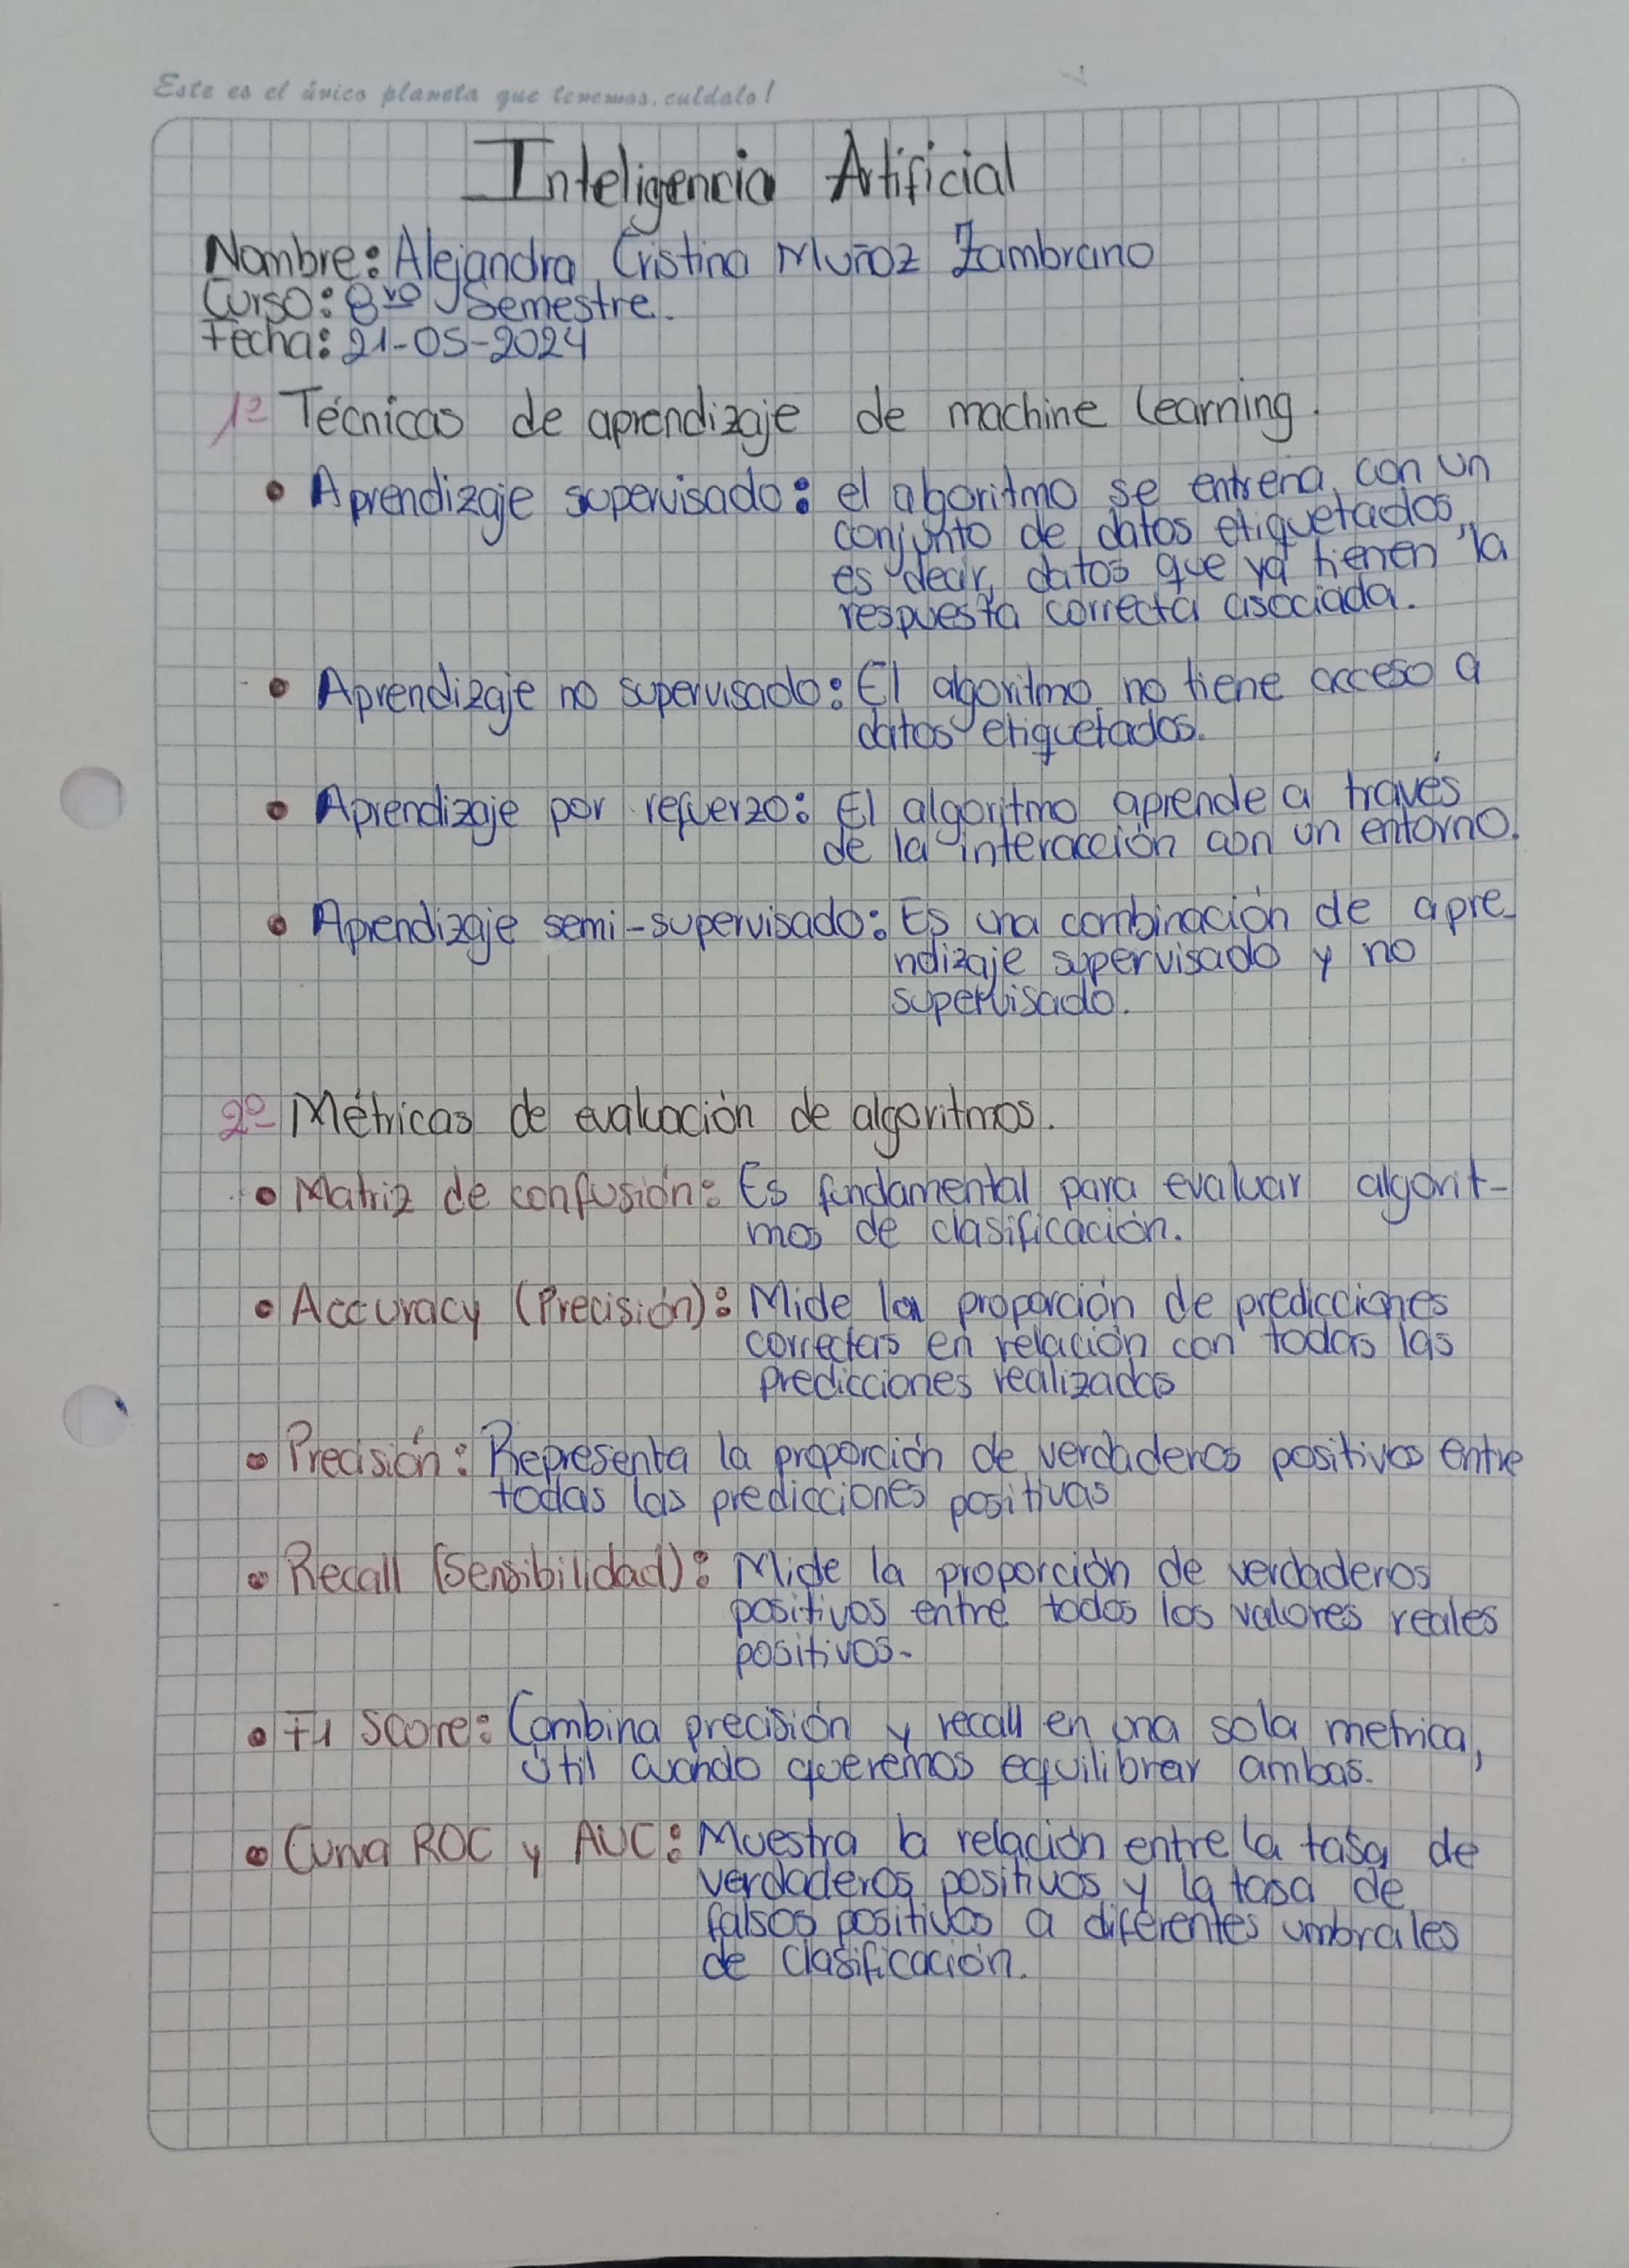 Este es el único planeta que tenemos, cuídalo!
Inteligencia Artificial
Nombre: Alejandra Cristina Muñoz Zambrano
Curso: 8vo Semestre.
Fecha: 21-05-2024
1º Técnicas de aprendizaje de machine learning.
• Aprendizaje supervisado: el algoritmo se entrena con un
conjunto de datos etiquetados,
es decir, datos que ya tienen la
respuesta correcta asociada.
• Aprendizaje no supervisado: El algoritmo no tiene acceso a
datos etiquetados.
• Aprendizaje por refuerzo: El algoritmo aprende a través
de la interacción con un entorno.
• Aprendizaje semi-supervisado: Es una combinación de apre-
ndizaje supervisado y no
supervisado.
2º Métricas de evaluación de algoritmos.
• Matriz de confusión: Es fundamental para evaluar algorit-
mos de clasificación.
• Accuracy (Precisión): Mide la proporción de predicciones
correctas en relación con todas las
predicciones realizadas
• Precisión: Representa la proporción de verdaderos positivos entre
todas las predicciones positivas
• Recall (Sensibilidad): Mide la proporción de verdaderos
positivos entre todos los valores reales
positivos.
• F1 Score: Combina precisión y recall en una sola metrica,
útil cuando queremos equilibrar ambas.
• Curva ROC y AUC: Muestra la relación entre la tasa de
verdaderos positivos y la tasa de
falsos positivos a diferentes umbrales
de clasificación.